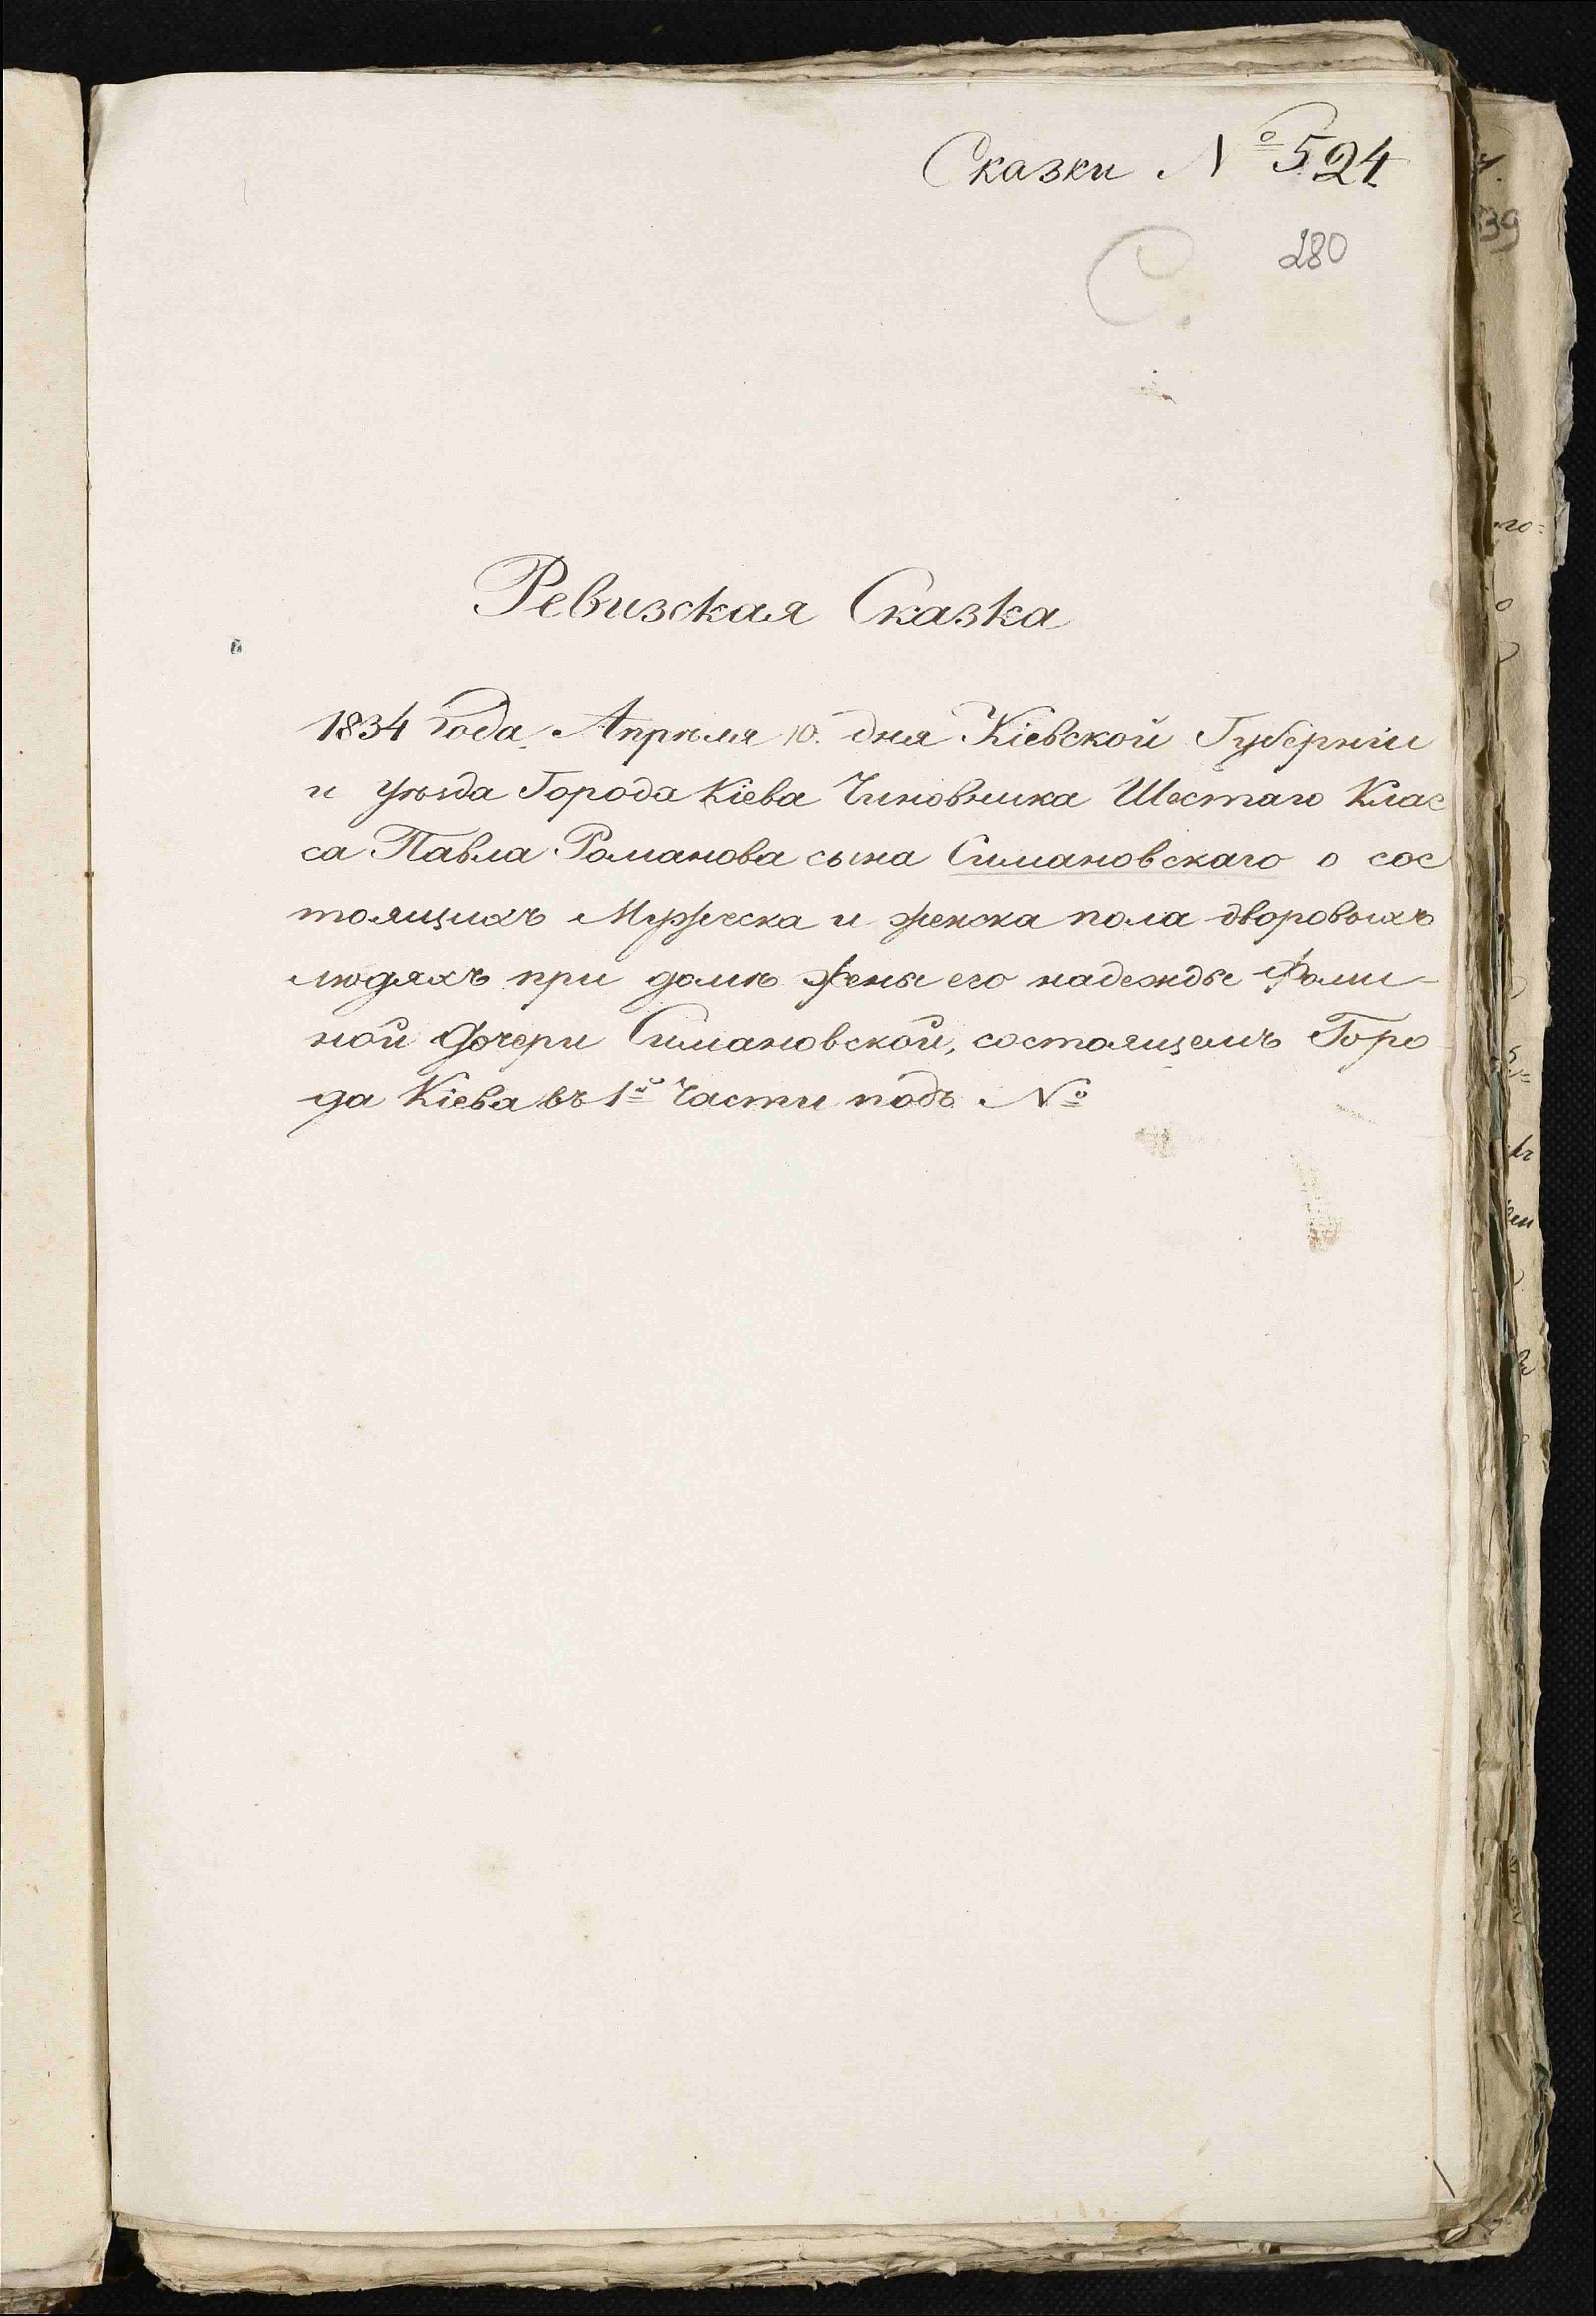 Сказки № 524
С.
280
Ревизская Сказка
1834 года Апрѣля 10. дня Кіевской Губерніи
и уѣзда Города Кіева Чиновника Шестаго Клас
са Павла Романова сына Симановскаго о сос
тоящихъ Мужеска и женска пола дворовыхъ
людяхъ при домѣ жены его надежды Фоми-
ной дочери Симановской, состоящемъ Горо
да Кіева въ 1й Части подъ №